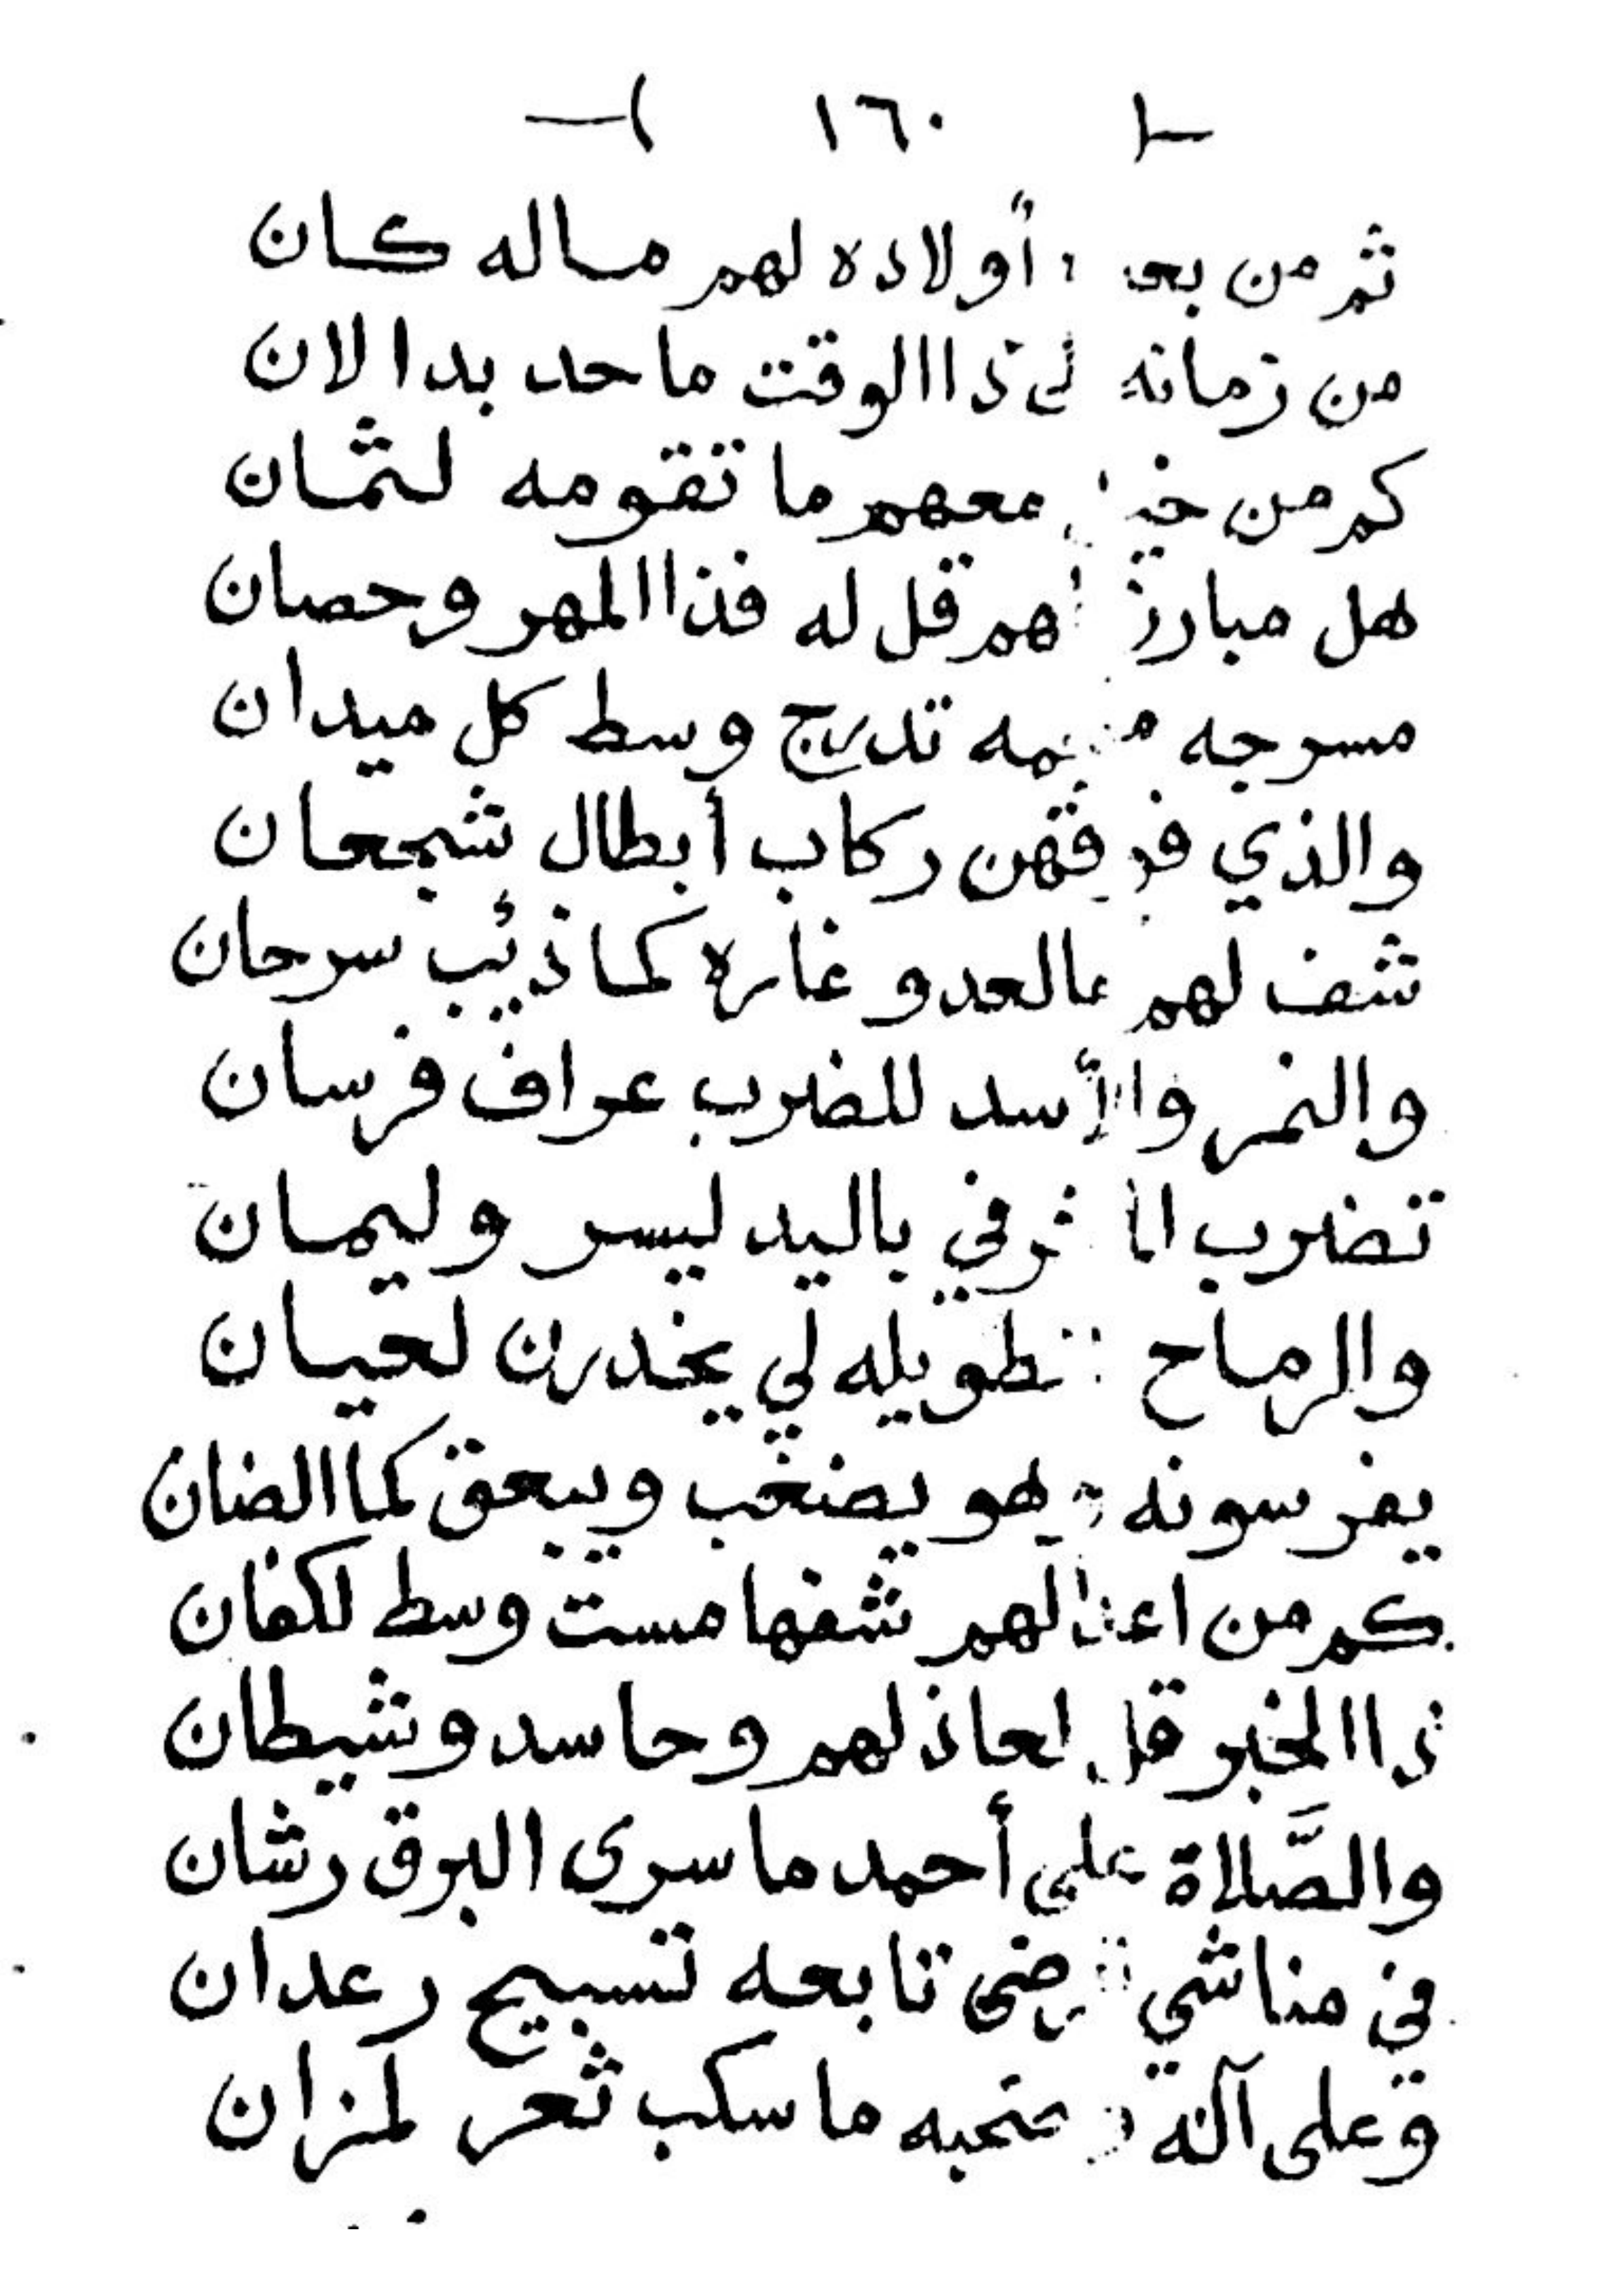 ١٦٠
ثم من بعد أولاده لهم ساله كان
من زمانه لى ذا الوقت ما حد بدا لان
كم من معهم ما تقومه لثمان
هل مبارز لهم قل له فذا المهر وحصان
مسرجه تدرج وسط كل ميدان
والذي فوقهن ركاب أبطال شجعان
شف لهم عالعدو غاره كما ذئب سرحان
والنمر والأسد للضرب عراف فرسان
تضرب باليد ليسر وليمان
والرماح الطويله لي يخدرن لحيان
يفرسونه وهو يضغب ويبعق كما الضان
كم من اعدا لهم شفها مست وسط لكفان
ذا الخبر قل لعاذلهم وحاسد وشيطان
والصَّلاة على أحمد ما سرى البرق رشان
في مناشي ترضى تابعه تسبيح رعدان
وعلى آله وصحبه ما سكب ثعر لمزان